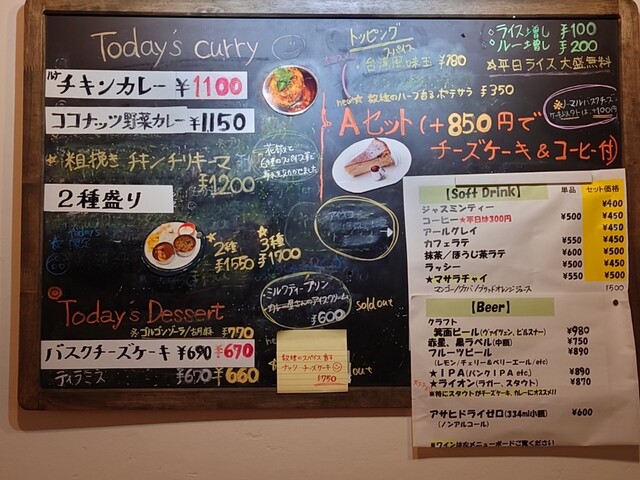 Today's curry
チキンカレー ¥1100
ココナッツ野菜カレー ¥1150
★粗挽き チキンチリキーマ
¥1200
2種盛り
★2種
¥1550
★3種
¥1700
Today's Dessert
※ゴルゴンゾーラ/古月麻 ¥770
バスクチーズケーキ ¥690 ¥670
ティラミス ¥670 ¥660
トッピング
スパイス
台湾風味玉 ¥780
new★ 数種のハーブ香るポテサラ ¥350
Aセット(+850円で
チーズケーキ&コーヒー付)
◦ライス増し ¥100
◦ルー増し ¥200
☆平日ライス大盛無料
ミルクティープリン
カレー屋さんのアイスクリーム
¥600
sold out
数種のスパイス香る
ナッツチーズケーキ
¥750
out
【Soft Drink】 単品 セット価格
ジャスミンティー ¥400
コーヒー★平日は300円 ¥500 ¥450
アールグレイ ¥450
カフェラテ ¥550 ¥450
抹茶/ほうじ茶ラテ ¥600 ¥500
ラッシー ¥500 ¥450
★マサラチャイ ¥550 ¥500
マンゴー/グァバ/ブラッドオレンジジュース ¥500
【Beer】
クラフト
箕面ビール(ヴァイツェン、ピルスナー) ¥980
赤星、黒ラベル(中瓶) ¥750
フルーツビール ¥890
(レモン/チェリー&ベリーエール/etc)
★IPA(パンクIPA etc) ¥890
★ライオン(ラガー、スタウト) ¥870
※特にスタウトがチーズケーキ、カレーにオススメ!!
アサヒドライゼロ(334ml小瓶) ¥600
(ノンアルコール)
※ワインは左メニューボードご覧ください